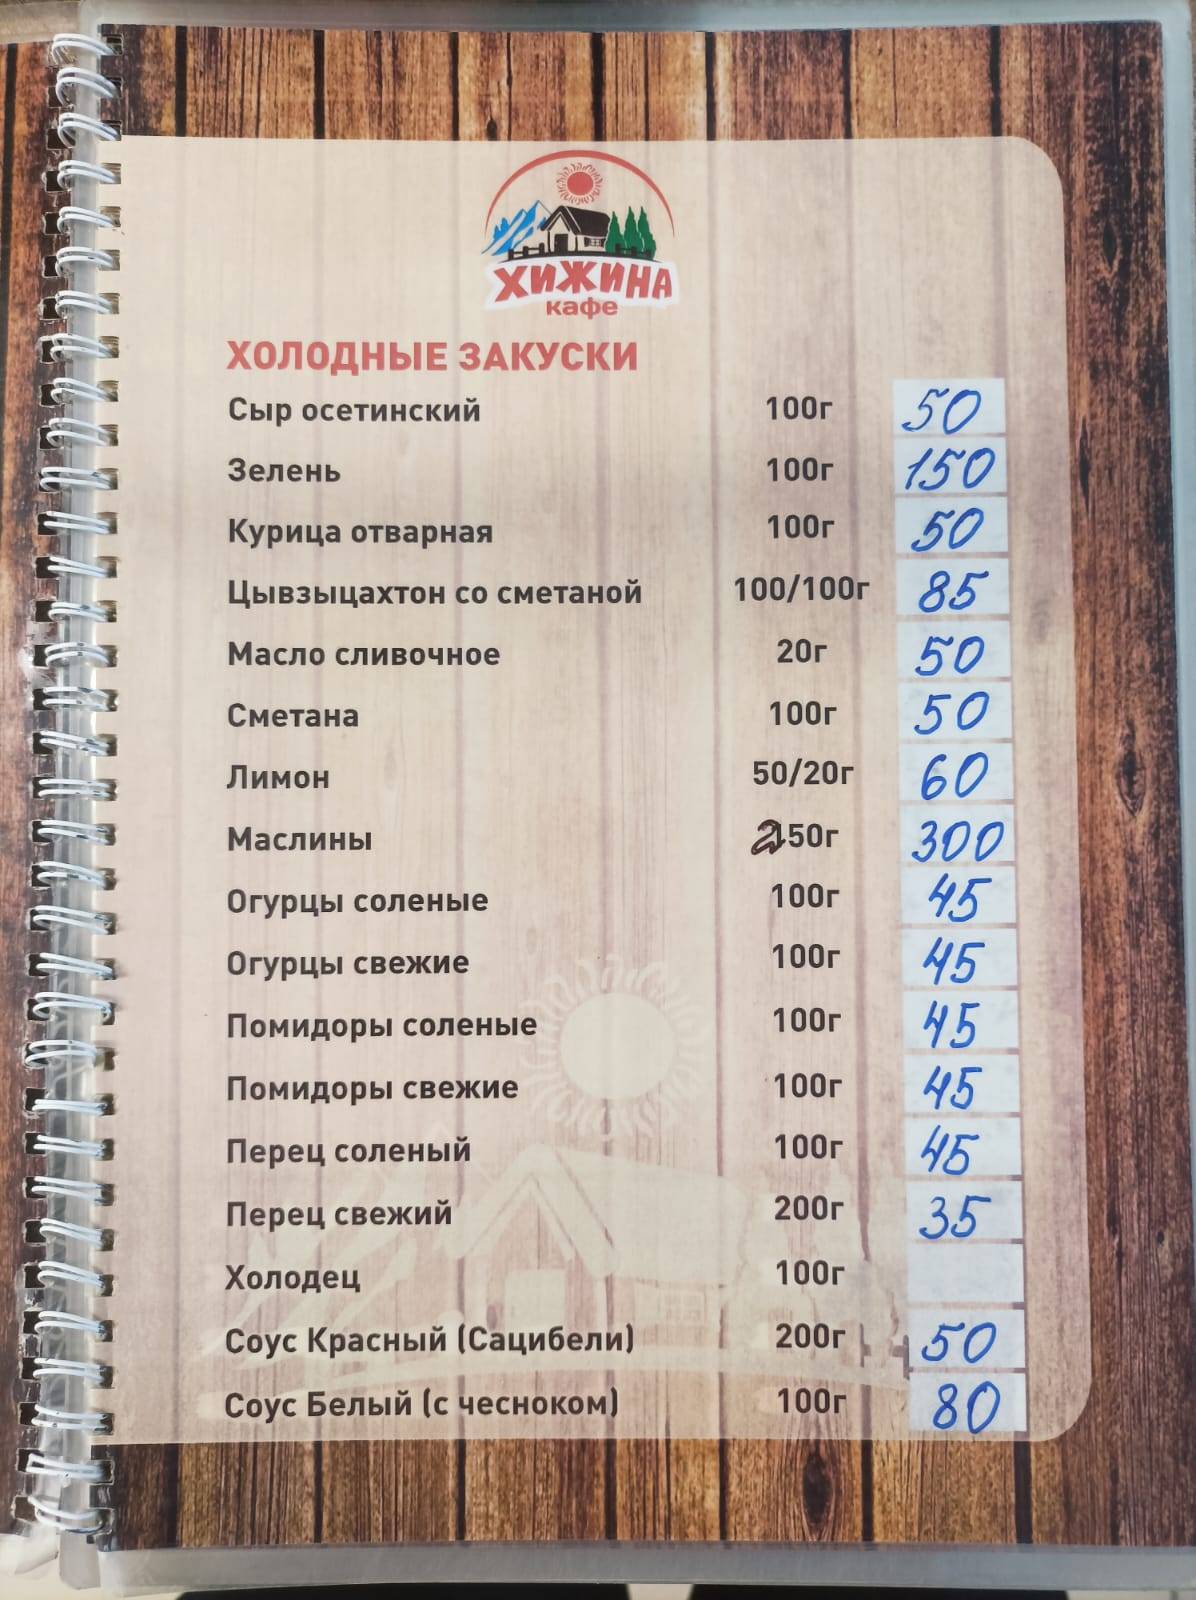 ХИЖИНА
кафе
ХОЛОДНЫЕ ЗАКУСКИ
Сыр осетинский 100г 50
Зелень 100г 150
Курица отварная 100г 50
Цывзыцахтон со сметаной 100/100г 85
Масло сливочное 20г 50
Сметана 100г 50
Лимон 50/20г 60
Маслины 250г 300
Огурцы соленые 100г 45
Огурцы свежие 100г 45
Помидоры соленые 100г 45
Помидоры свежие 100г 45
Перец соленый 100г 45
Перец свежий 200г 35
Холодец 100г
Соус Красный (Сацибели) 200г 50
Соус Белый (с чесноком) 100г 80